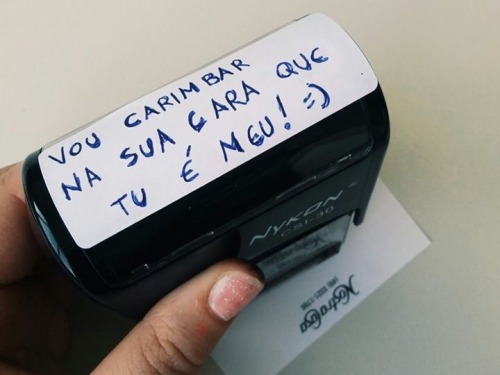 VOU CARIMBAR
NA SUA CARA QUE
TU É MEU! =)
NYKON
CSI-30